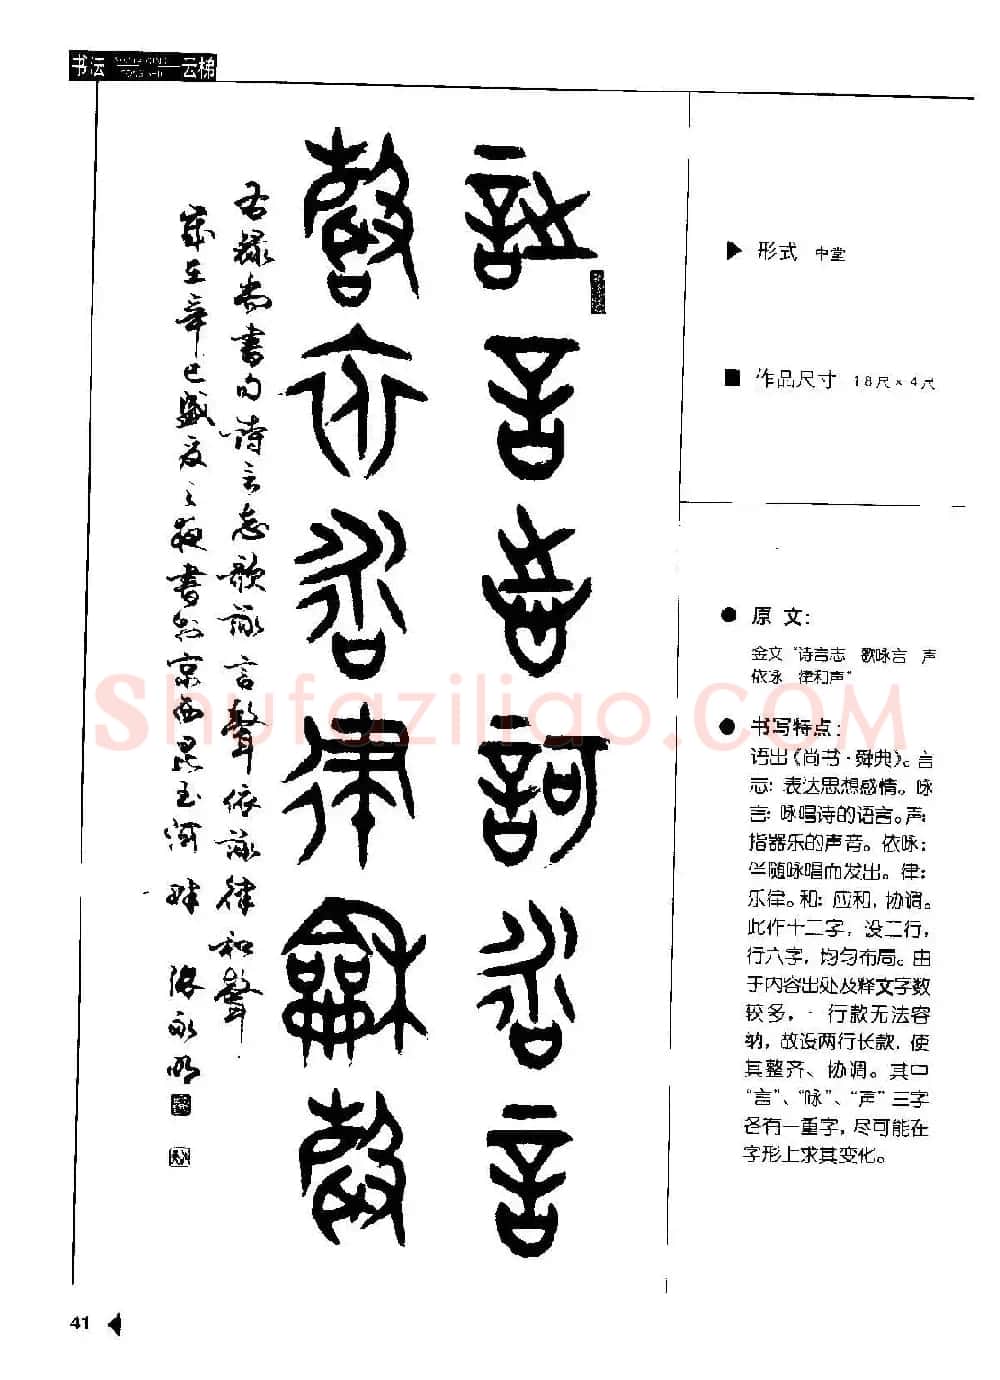 书法
云梯
詩言志訶咏言
聲依咏律龢聲
右録尚書句詩言志歌詠言聲依詠律和聲
歲在辛巳盛夏之夜書於京西昆玉河畔 張永明
▶ 形式 中堂
■ 作品尺寸 18尺×4尺
● 原文:
金文“诗言志 歌咏言 声
依咏 律和声”
● 书写特点:
语出《尚书·舜典》。言
志: 表达思想感情。咏
言: 咏唱诗的语言。声:
指器乐的声音。依咏:
伴随咏唱而发出。律:
乐律。和: 应和, 协调。
此作十二字, 设二行,
行六字, 均匀布局。由
于内容出处及释文字数
较多, 一行款无法容
纳, 故设两行长款, 使
其整齐、协调。其中
“言”、“咏”、“声”三字
各有一重字, 尽可能在
字形上求其变化。
Shufaziliao.com
41